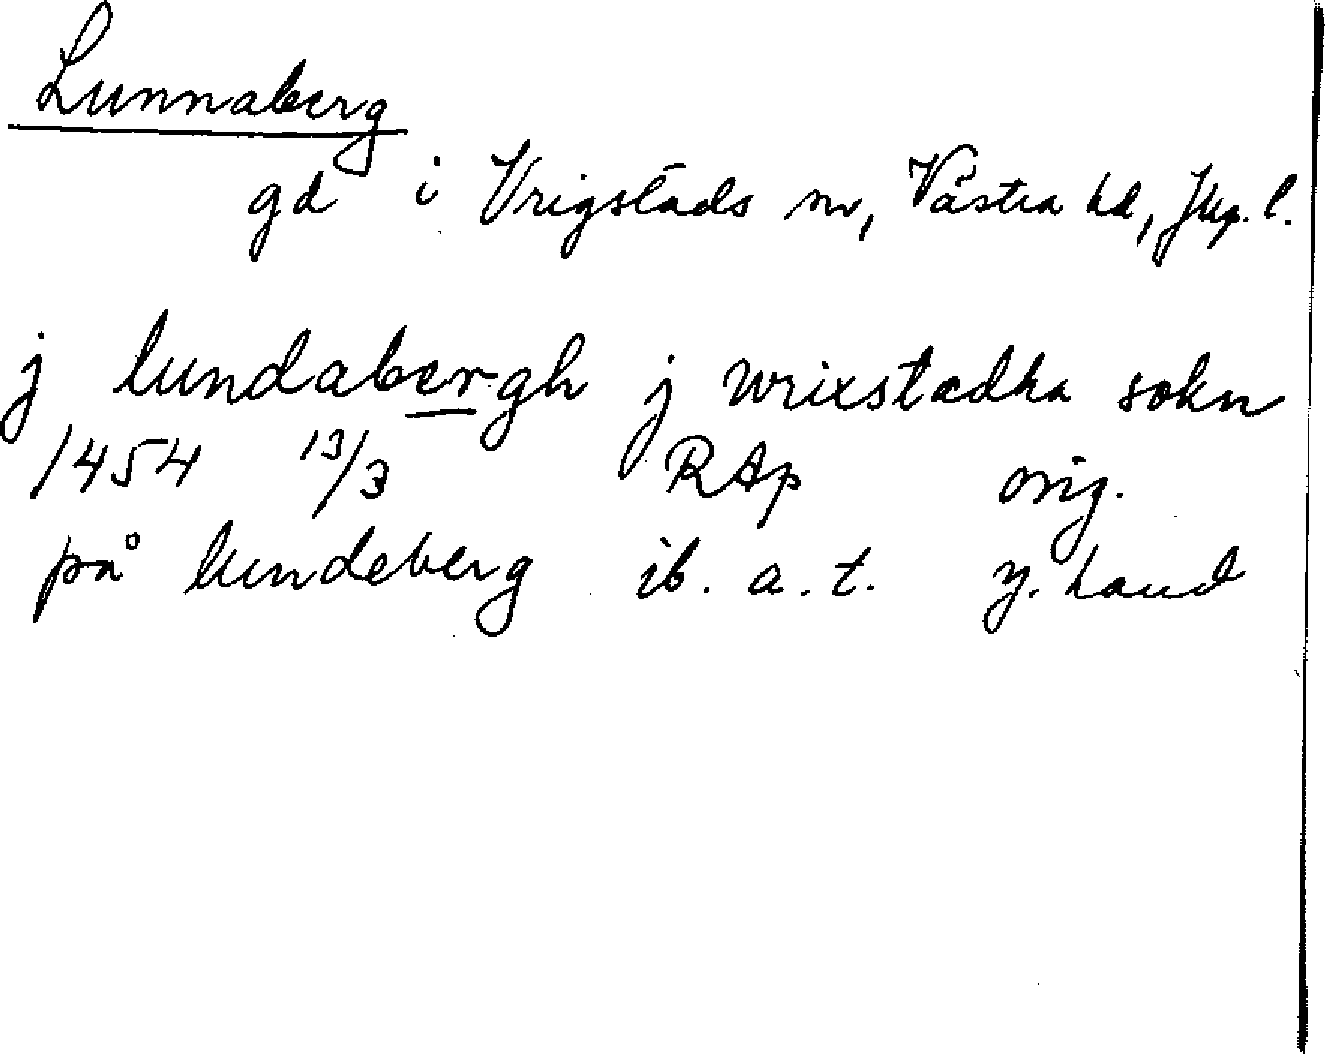 Lunnaberg
gd i Vrigstads sn, Västra hd, Jkp. l.
j lundabergh j wrixstadha sokn
1454 13/3 RAp orig.
på lundeberg ib. a. t. y. hand